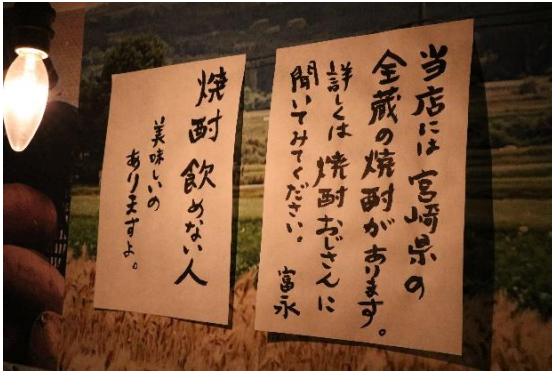 当店には宮崎県の
全蔵の焼酎があります。
詳しくは焼酎おじさんに
聞いてみてください。
富永
焼酎飲めない人
美味しいの
ありますよ。